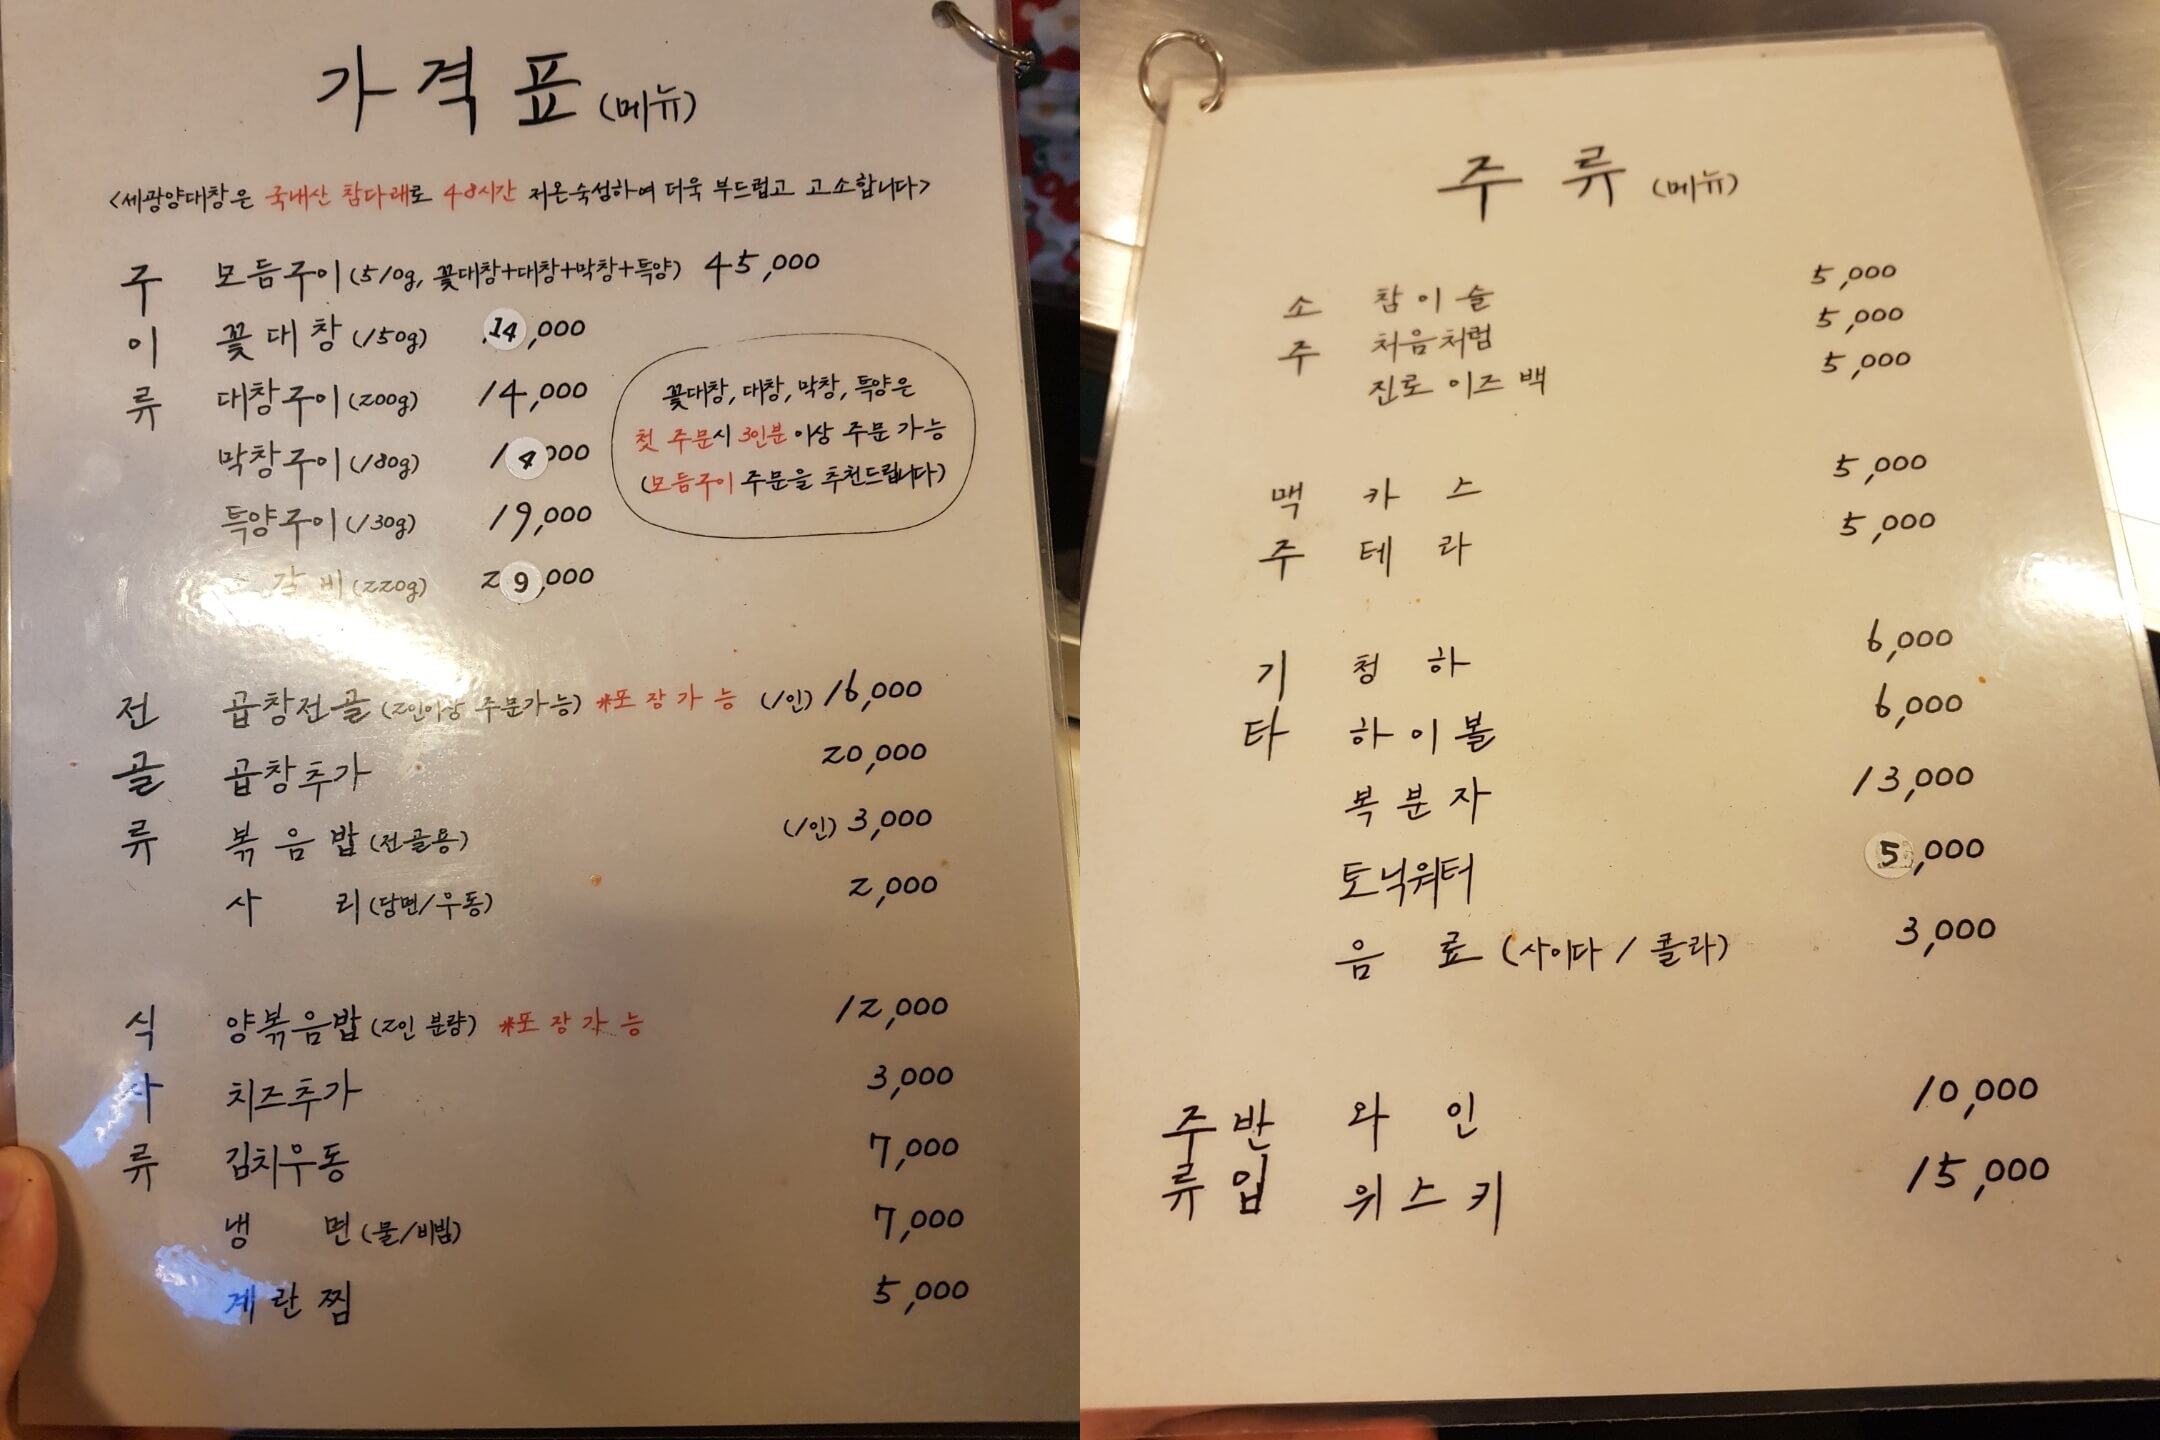 가격표 (메뉴)
<세광양대창은 국내산 참다래로 48시간 저온숙성하여 더욱 부드럽고 고소합니다>
구이류
모듬구이 (510g, 꽃대창+대창+막창+특양) 45,000
꽃대창 (150g) 14,000
대창구이 (200g) 14,000
막창구이 (180g) 14,000
특양구이 (130g) 19,000
갈비 (220g) 29,000
꽃대창, 대창, 막창, 특양은
첫 주문시 3인분 이상 주문 가능
(모듬구이 주문을 추천드립니다)
전골류
곱창전골 (2인이상 주문가능) *포장가능 (1인) 16,000
곱창추가 20,000
볶음밥 (전골용) (1인) 3,000
사리 (당면/우동) 2,000
식사류
양볶음밥 (2인 분량) *포장가능 12,000
치즈추가 3,000
김치우동 7,000
냉면 (물/비빔) 7,000
계란찜 5,000
주류 (메뉴)
소주
참이슬 5,000
처음처럼 5,000
진로이즈백 5,000
맥주
카스 5,000
테라 5,000
기타
청하 6,000
하이볼 6,000
복분자 13,000
토닉워터 5,000
음료 (사이다 / 콜라) 3,000
주류반입
와인 10,000
위스키 15,000